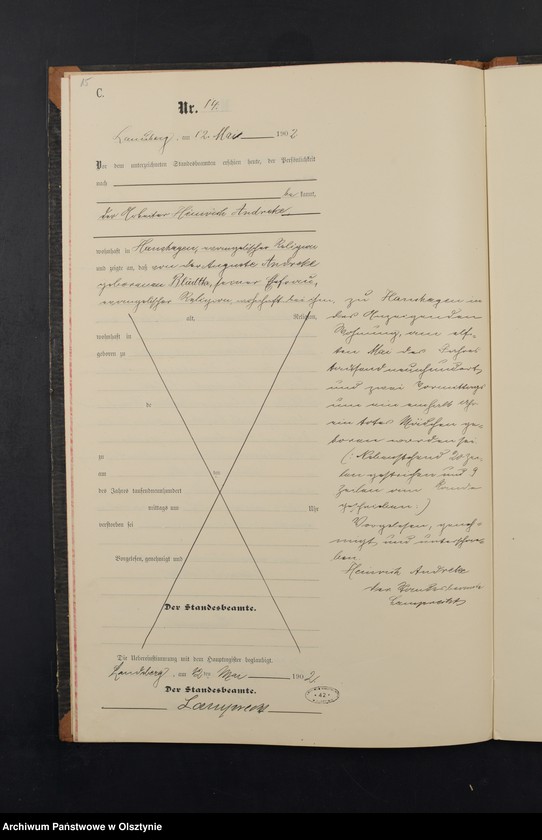 15
C.
Nr. 14.
Landsberg, am 12. Mai 1902
Vor dem unterzeichneten Standesbeamten erschien heute, der Persönlichkeit
nach
be kannt,
der Arbeiter Heinrich Andreke
wohnhaft in Hanshagen, evangelischer Religion
und zeigte an, daß von der Auguste Andreke
geborenen Bludtka, seiner Ehefrau,
evangelischer Religion, wohnhaft bei ihm,
alt, Religion,
wohnhaft in
geboren zu
zu
am
des Jahres tausendneunhundert
mittags um Uhr
verstorben sei
Vorgelesen, genehmigt und
Der Standesbeamte.
zu Hanshagen in
des Anzeigenden
Wohnung, am elf-
ten Mai des Jahres
tausend neunhundert
und zwei Vormittags
um ein einhalb Uhr
ein totes Mädchen ge-
boren worden sei.
(: Nebenstehend 20 Zei-
len gestrichen und 9
Zeilen am Rande
geschrieben. :)
Vorgelesen, geneh-
migt und unterschrie-
ben.
Heinrich Andreke
der Standesbeamte
Die Uebereinstimmung mit dem Hauptregister beglaubigt.
Landsberg, am 12ten Mai 1902
Der Standesbeamte.
42
Archiwum Państwowe w Olsztynie